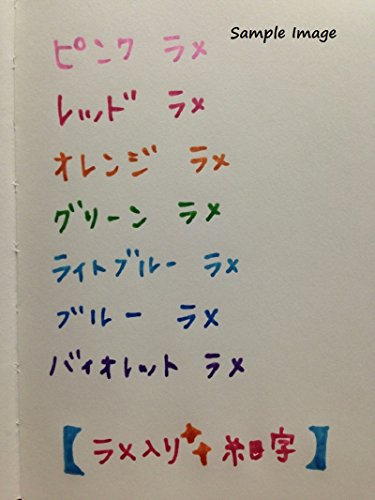 Sample Image
ピンク ラメ
レッド ラメ
オレンジ ラメ
グリーン ラメ
ライトブルー ラメ
ブルー ラメ
バイオレット ラメ
【ラメ入り細字】